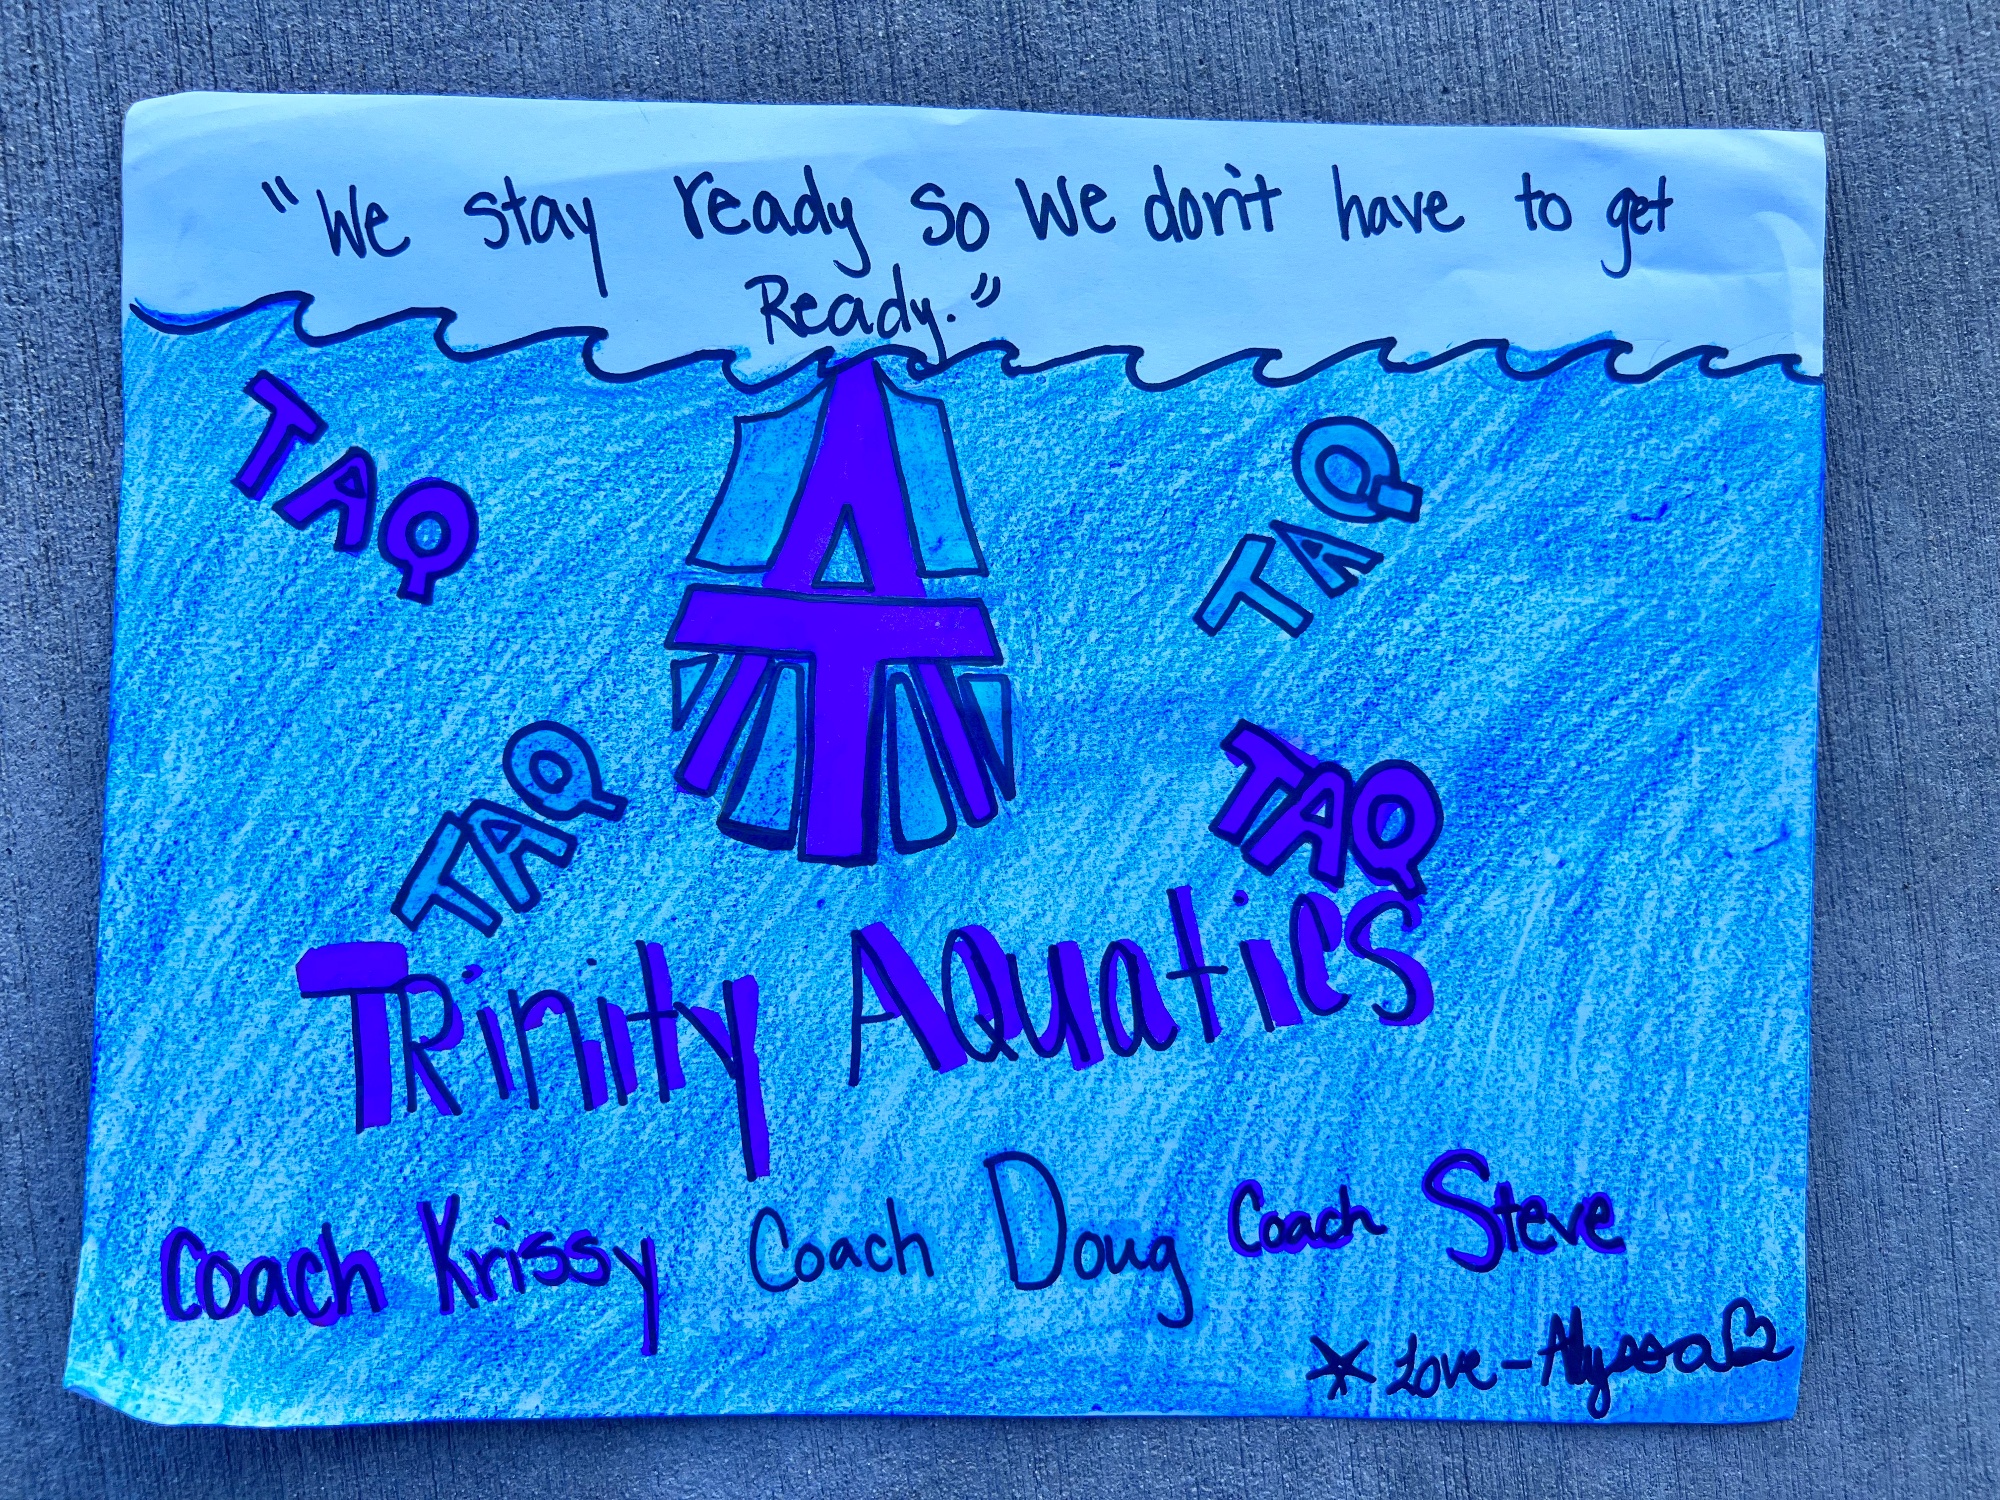 "We stay ready so We don't have to get
Ready."
TAQ
TAQ
AT
TAQ
TAQ
Trinity Aquatics
Coach Krissy Coach Doug Coach Steve
* Love - Alyssa